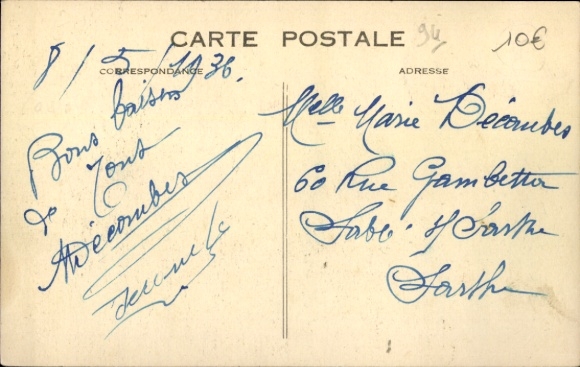 CARTE POSTALE
94
10€
CORRESPONDANCE
ADRESSE
8/5/1936.
Bons baisers
de Tous
Décombes
Melle Marie Décombes
60 Rue Gambetta
Sablé s/ Sarthe
Sarthe